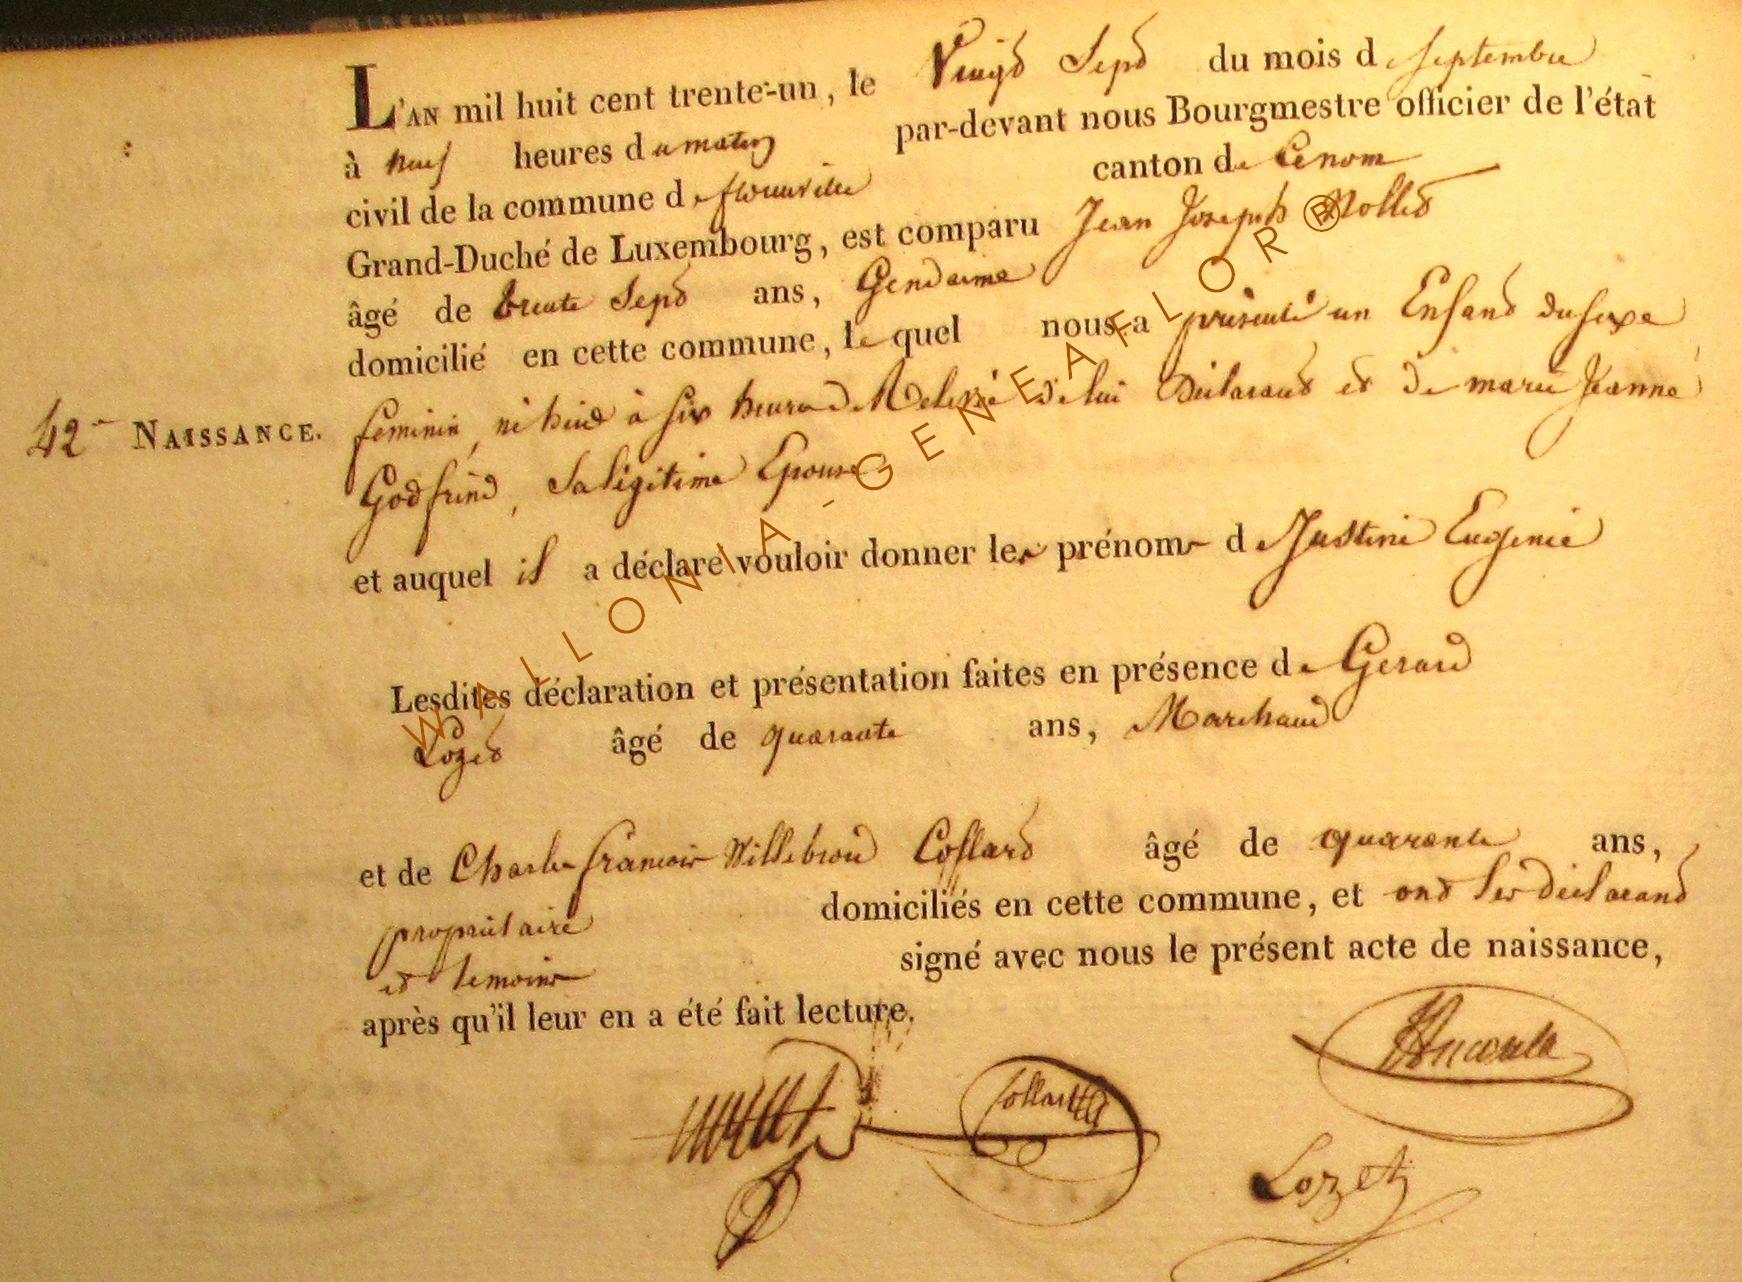 L'AN mil huit cent trente-un, le Vingt Sept du mois de septembre
à neuf heures du matin par-devant nous Bourgmestre officier de l'état
civil de la commune de florenville canton de
Grand-Duché de Luxembourg, est comparu Jean Joseph Mollet
âgé de trente Sept ans, Gendarme
domicilié en cette commune, lequel nous a présenté un Enfant du sexe
42 NAISSANCE. feminin, né hier à six heures de lui Déclarant et de marie Jeanne
Godfrind, Sa légitime Epouse
et auquel il a déclaré vouloir donner les prénoms de Justine Eugenie
Lesdites déclaration et présentation faites en présence de Gerard
Lozet âgé de quarante ans, Marchand
et de Charles francois Willebrord Collard âgé de quarante ans,
propriétaire domiciliés en cette commune, et ont les déclarant
et temoins signé avec nous le présent acte de naissance,
après qu'il leur en a été fait lecture.
Collard
Lozet
WALLONIA-GENEAFLOR®